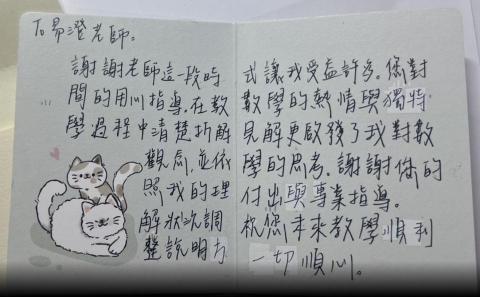 To 昴澄老師。
謝謝老師這一段時
間的用心指導。在教
學過程中清楚拆解
觀念,並依
照我的理
解狀況調
整說明方
式讓我受益許多。您對
數學的熱情與獨特
見解更啟發了我對數
學的思考。謝謝你的
付出與專業指導。
祝您未來教學順利
一切順心。